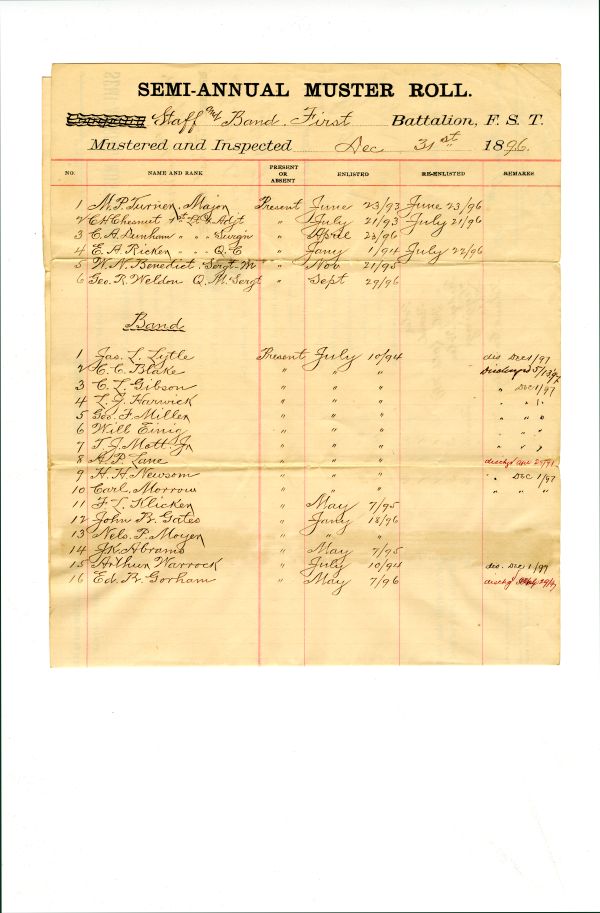 SEMI-ANNUAL MUSTER ROLL.
Staff and Band. First Battalion, F. S. T.
Mustered and Inspected Dec 31st 1896.
NO. NAME AND RANK PRESENT OR ABSENT ENLISTED RE-ENLISTED REMARKS
1 M. P. Turner, Major Present June 23/93 June 23/96
2 C H Chesnut 1st Lt. Adjt " July 21/93 July 21/96
3 C. A. Dunham " " Surgn " April 23/96
4 E. A. Ricker " " Q. C " Jany 1/94 July 22/96
5 W. N. Benedict Sergt. M " Nov 21/95
6 Geo. R. Weldon Q. M. Sergt " Sept 29/96
Band
1 Jas. L. Lytle Present July 10/94 dis Dec 1/97
2 C. C. Blake " " " Discharged 5/13/97
3 C. L. Gibson " " " " Dec 1/97
4 L. J. Harwick " " " " " "
5 Geo. F. Miller " " " " " "
6 Will Einig " " " " " "
7 T. J. Mott Jr " " " " " "
8 A. P. Lane " " " dischgd
9 H. H. Newsom " " " " " Dec 1/97
10 Carl Morrow " " " " " "
11 F. L. Klicker " May 7/95
12 John B. Gates " Jany 18/96
13 Nels. P. Moyer " " "
14 J. K. Abrams " May 7/95
15 Arthur Warrock " July 10/94 dis. Dec 1/97
16 Ed. R. Gorham " May 7/96 dischgd